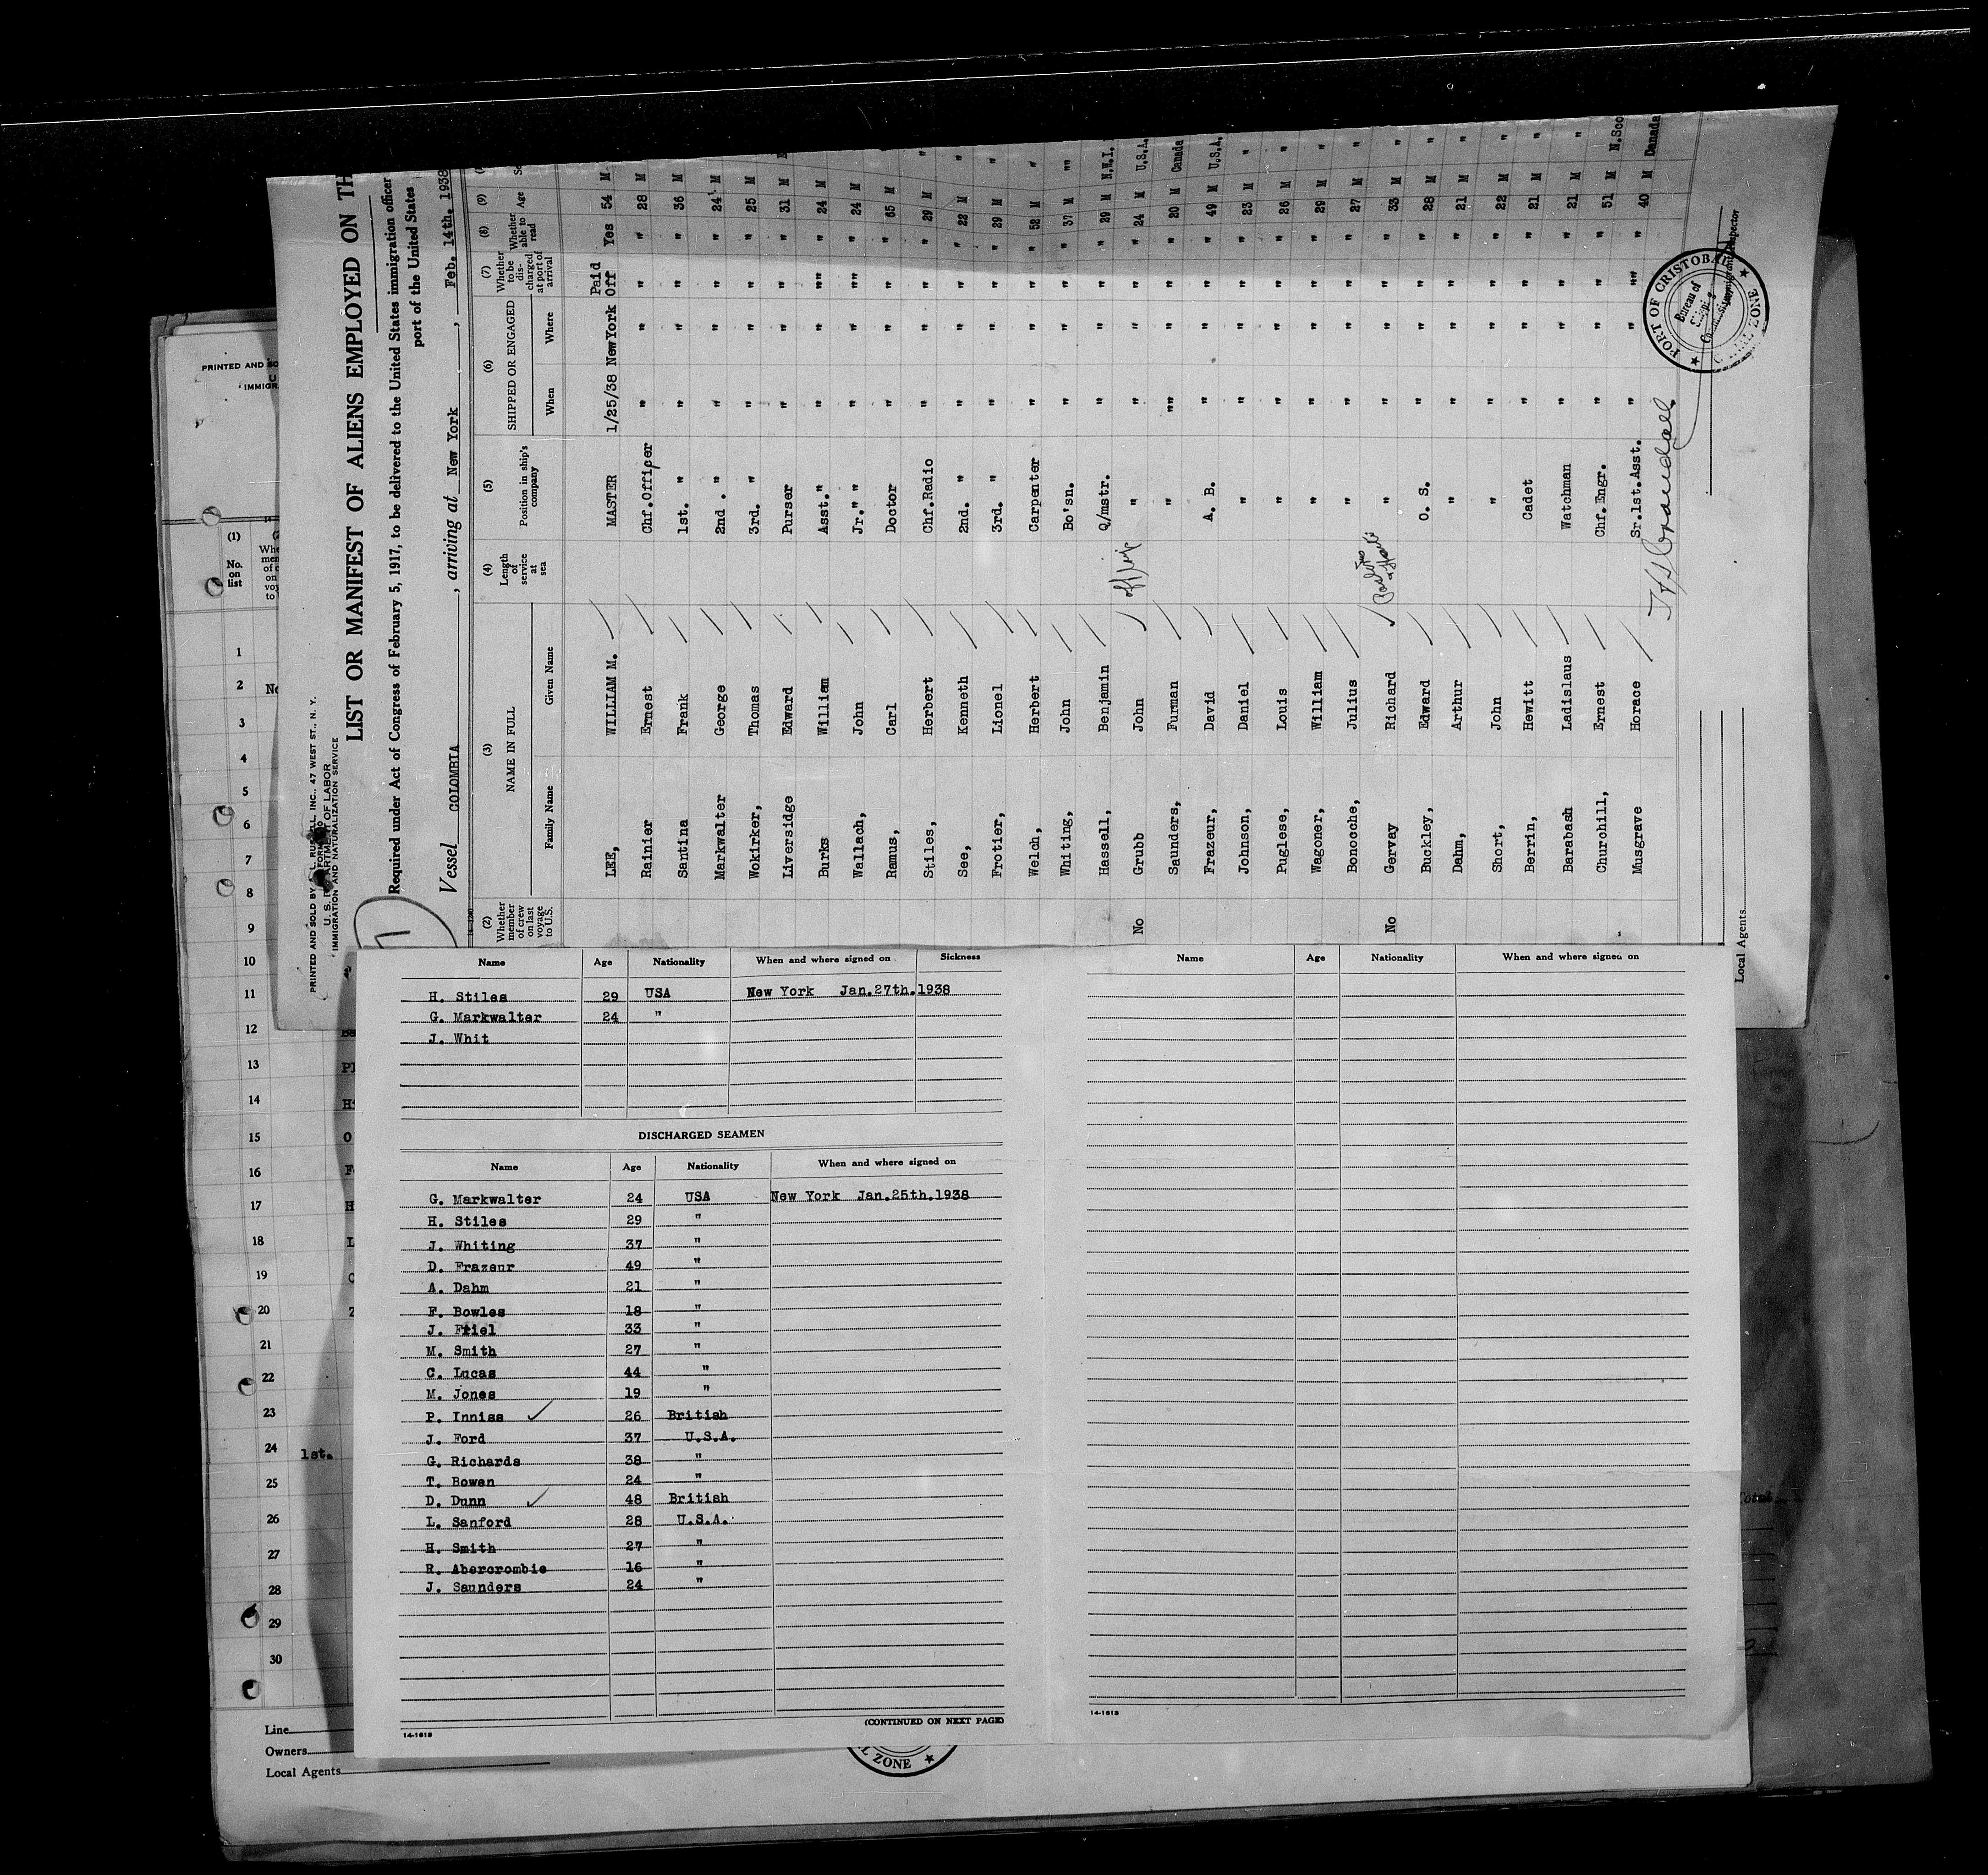 PRINTED AND SOLD BY
RUSSELL, INC., 47 WEST ST., N. Y.
U. S. DEPARTMENT OF LABOR
IMMIGRATION AND NATURALIZATION SERVICE
LIST OR MANIFEST OF ALIENS EMPLOYED ON TH
Required under Act of Congress of February 5, 1917, to be delivered to the United States immigration officer
port of the United States
Vessel COLOMBIA , arriving at New York , Feb. 14th. 1938
(2) Whether member of crew on last voyage to U.S. (3) NAME IN FULL Family Name Given Name (4) Length of service at sea (5) Position in ship's company (6) SHIPPED OR ENGAGED When Where (7) Whether to be discharged at port of arrival (8) Whether able to read (9) Age
LEE, WILLIAM M. MASTER 1/25/38 NewYork Paid Off Yes 54 M
Rainier Ernest Chf.Officer " " " " 28 M
Santina Frank 1st. " " " " " 36 M
Markwalter George 2nd. " " " " " 24 M
Wokirker, Thomas 3rd. " " " " " 25 M
Liversidge Edward Purser " " " " 31 M
Burks William Asst." " " "" " 24 M
Wallach, John Jr." " " " "" " 24 M
Ramus, Carl Doctor " " " " 65 M
Stiles, Herbert Chf.Radio " " " " 29 M "
See, Kenneth 2nd. " " " " " 22 M "
Frotier, Lionel 3rd. " " " " " 29 M "
Welch, Herbert Carpenter " " " " 52 M "
Whiting, John Bo'sn. " " " " 37 M ""
Hassell, Benjamin Q/mstr. " " " " 29 M N.W.I.
No Grubb John " " " " " 24 M U.S.A.
Saunders, Furman " "" " " " 20 M Canada
Frazeur, David A. B. " " " " 49 M U.S.A.
Johnson, Daniel " " " " " 23 M "
Puglese, Louis " " " " " 26 M "
Wagoner, William " " " " " 29 M "
Bonocche, Julius " " " " " 27 M "
No Gervay Richard " " " " " 33 M "
Buckley, Edward O. S. " " " " 28 M "
Dahm, Arthur " " " " " 21 M "
Short, John " " " " " 22 M "
Berrin, Hewitt Cadet " " " " 21 M "
Barabash Ladislaus Watchman " " " " 21 M "
Churchill, Ernest Chf.Engr. " " " " 51 M N.Sco
Musgrave Horace Sr.1st.Asst. " " "" " 40 M Danada
PORT OF CRISTOBAL
Bureau of
Local Agents
PRINTED AND SO
U
IMMIGR
(1)
No. on list
1
2
3
4
5
6
7
8
9
10
11
12
13
14
15
16
17
18
19
20
21
22
23
24 1st.
25
26
27
28
29
30
Line
Owners
Local Agents
L ZONE
Name Age Nationality When and where signed on Sickness
H. Stiles 29 USA New York Jan.27th.1938
G. Markwalter 24 "
J. Whit
DISCHARGED SEAMEN
Name Age Nationality When and where signed on
G. Markwalter 24 USA New York Jan.25th.1938
H. Stiles 29 "
J. Whiting 37 "
D. Frazeur 49 "
A. Dahm 21 "
F. Bowles 18 "
J. Friel 33 "
M. Smith 27 "
C. Lucas 44 "
M. Jones 19 "
P. Inniss ✓ 26 British
J. Ford 37 U.S.A.
G. Richards 38 "
T. Bowen 24 "
D. Dunn ✓ 48 British
L. Sanford 28 U.S.A.
H. Smith 27 "
R. Abercrombie 16 "
J. Saunders 24 "
(CONTINUED ON NEXT PAGE)
14-1613
Name Age Nationality When and where signed on
14-1613